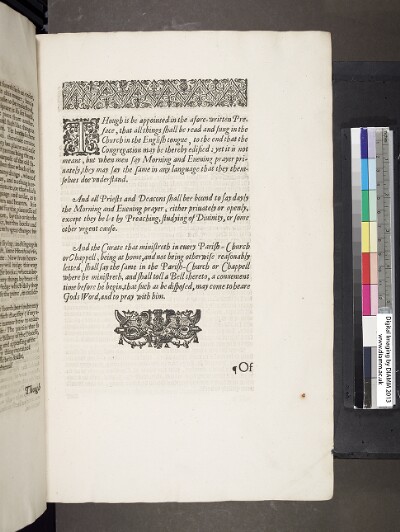 THough it be appointed in the afore-written Pre-
face, that all things shall be read and song in the
Church in the English tongue, to the end that the
Congregation may be thereby edified; yet it is not
meant, but when men say Morning and Evening prayer pri-
uately, they may say the same in any language that they them-
selues doe vnderstand.
And all Priests and Deacons shall bee bound to say dayly
the Morning and Euening prayer, either priuately or openly,
except they be let by Preaching, studying of Diuinity, or some
other vrgent cause.
And the Curate that ministreth in euery Parish-Church
or Chappell, being at home, and not being otherwise reasonably
letted, shall say the same in the Parish-Church or Chappell
where he ministreth, and shall toll a Bell thereto, a conuenient
time before he begin, that such as be disposed, may come to heare
Gods Word, and to pray with him.
¶ Of
Though
Digital Imaging by DIAMM 2013
www.diamm.ac.uk